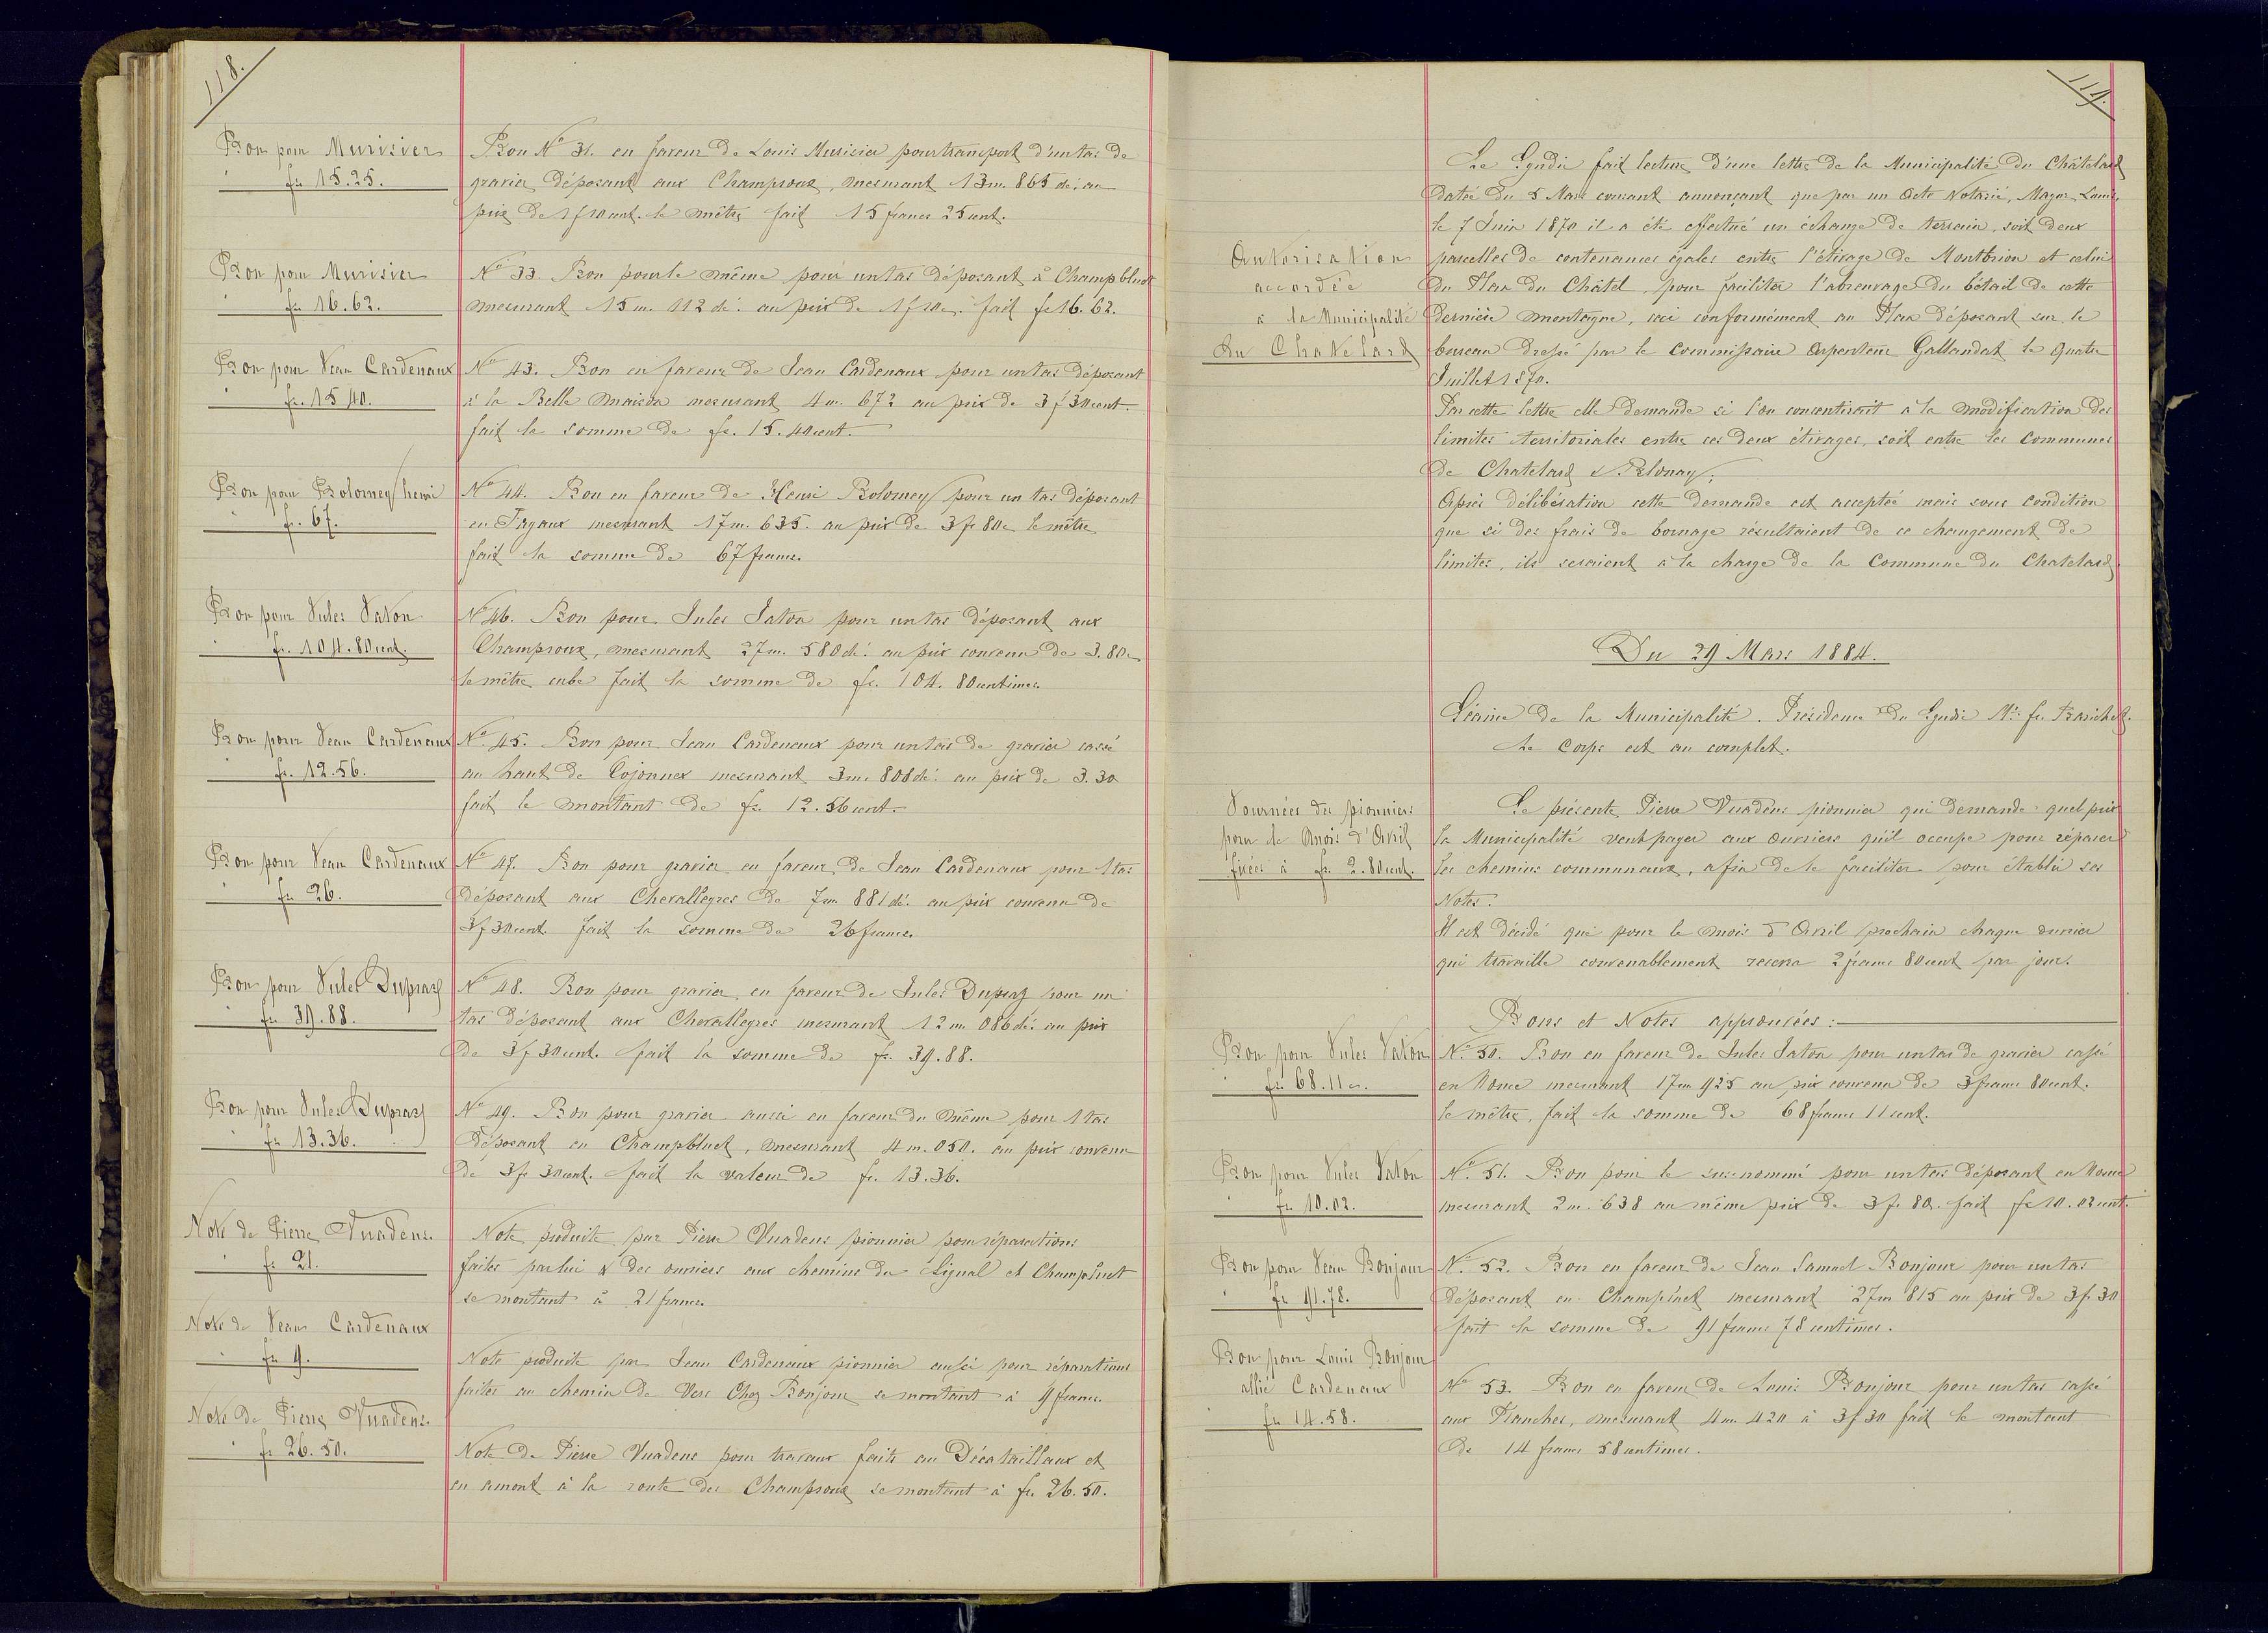 118.
Bon pour Murisier
fr. 15.25.
Bon N° 31. en faveur de Louis Murisier pour transport d'un tas de
gravier déposant aux Champsoux, mesurant 13m. 865 dé: au
prix de 1f10cent. le mètre fait 15 francs 25cent.
Bon pour Murisier
fr. 16.62.
N° 33. Bon pour le même pour un tas déposant à Champbluet
mesurant 15m. 112 dé. au prix de 1f10c. fait fr 16.62.
Bon pour Jean Cardenaux
fr. 15 40.
N° 43. Bon en faveur de Jean Cardenaux pour un tas déposant
à la Belle Maison mesurant 4m. 672 au prix de 3f30cent.
fait la somme de fr. 15.40cent.
Bon pour Bolomey henri
fr. 67.
N° 44. Bon en faveur de Henri Bolomey pour un tas déposant
en Fayaux mesurant 17m. 635. au prix de 3fr80c le mètre
fait la somme de 67 francs.
Bon pour Jules Jaton
fr. 104.80cent.
N° 46. Bon pour Jules Jaton pour un tas déposant aux
Champsoux, mesurant 27m. 580dé: au prix convenu de 3.80c
le mètre cube fait la somme de fr. 104. 80centimes.
Bon pour Jean Cardenaux
fr. 12.56.
N° 45. Bon pour Jean Cardenaux pour un tas de gravier cassé
au haut de Cojonnex mesurant 3m. 808dé: au prix de 3.30
fait le montant de fr. 12.56cent.
Bon pour Jean Cardenaux
fr. 26.
N° 47. Bon pour gravier en faveur de Jean Cardenaux pour 1 tas
déposant aux Chevalleyres de 7m. 881dé. au prix convenu de
3f30cent. fait la somme de 26 francs.
Bon pour Jules Dupraz
fr. 39.88.
N° 48. Bon pour gravier en faveur de Jules Dupraz pour un
tas déposant aux Chevalleyres mesurant 12m. 086dé: au prix
de 3f30cent. fait la somme de fr. 39.88.
Bon pour Jules Dupraz
fr. 13.36.
N° 49. Bon pour gravier aussi en faveur du même pour 1 tas
déposant en Champbluet, mesurant 4m. 050. au prix convenu
de 3fr30cent. fait la valeur de fr. 13.36.
Note de Pierre Vuadens.
fr. 21.
Note produite par Pierre Vuadens pionnier pour réparations
faites par lui & des ouvriers aux chemins du Signal et Champluet
se montant à 21 francs.
Note de Jean Cardenaux
fr. 9.
Note produite par Jean Cardenaux pionnier aussi pour réparations
faites au chemin de Vers Chez Bonjour se montant à 9 francs.
Note de Pierre Vuadens.
fr. 26.50.
Note de Pierre Vuadens pour travaux faits au Décotaillaux et
en amont à la route des Champsoux se montant à fr. 26.50.
119.
Le Syndic fait lecture d'une lettre de la Municipalité du Châtelard
datée du 5 Mars courant annonçant que par un Acte Notarié, Mayor Louis,
le 7 Juin 1870 il a été effectué un échange de terrain, soit deux
Autorisation
accordée
à la Municipalité
du Chatelard
parcelles de contenances égales entre l'étivage de Montbrion et celui
du Plan du Châtel, pour faciliter l'abreuvage du bétail de cette
dernière montagne, ceci conformément au Plan déposant sur le
bureau dressé par le Commissaire Arpenteur Gallandat le Quatre
Juillet 1870.
Par cette lettre elle demande si l'on consentirait à la modification des
limites territoriales entre ces deux étivages, soit entre les Communes
de Chatelard & Blonay;
Après délibération cette demande est acceptée mais sous condition
que si des frais de bornage résultaient de ce changement de
limites, ils seraient à la charge de la Commune du Chatelard.
Du 29 Mars 1884.
Séance de la Municipalité. Présidence du Syndic Mr. fr.
Le Corps est au complet.
Journées des pionniers
pour le Mois d'Avril
fixées à fr. 2.80cent.
Se présente Pierre Vuadens pionnier qui demande quel prix
la Municipalité veut payer aux ouvriers qu'il occupe pour réparer
les chemins communaux, afin de le faciliter pour établir ses
Notes.
Il est décidé que pour le mois d'Avril prochain chaque ouvrier
qui travaille convenablement recevra 2 francs 80cent par jour.
Bons et Notes approuvées:
Bon pour Jules Jaton
fr. 68.11c.
N° 50. Bon en faveur de Jules Jaton pour un tas de gravier cassé
en Nome mesurant 17m 925 au prix convenu de 3 francs 80cent.
le mètre, fait la somme de 68 francs 11cent.
Bon pour Jules Jaton
fr. 10.02.
N° 51. Bon pour le sus-nommé pour un tas déposant en Nome
mesurant 2m. 638 au même prix de 3fr. 80. fait fr 10.02cent.
Bon pour Jean Bonjour
fr. 91.78.
N° 52. Bon en faveur de Jean Samuel Bonjour pour un tas
déposant en Champluet mesurant 27m 815 au prix de 3f. 30
fait la somme de 91 francs 78centimes.
Bon pour Louis Bonjour
allié Cardenaux
fr. 14.58.
N° 53. Bon en faveur de Louis Bonjour pour un tas cassé
aux Planches, mesurant 4m. 420 à 3f30 fait le montant
de 14 francs 58centimes.